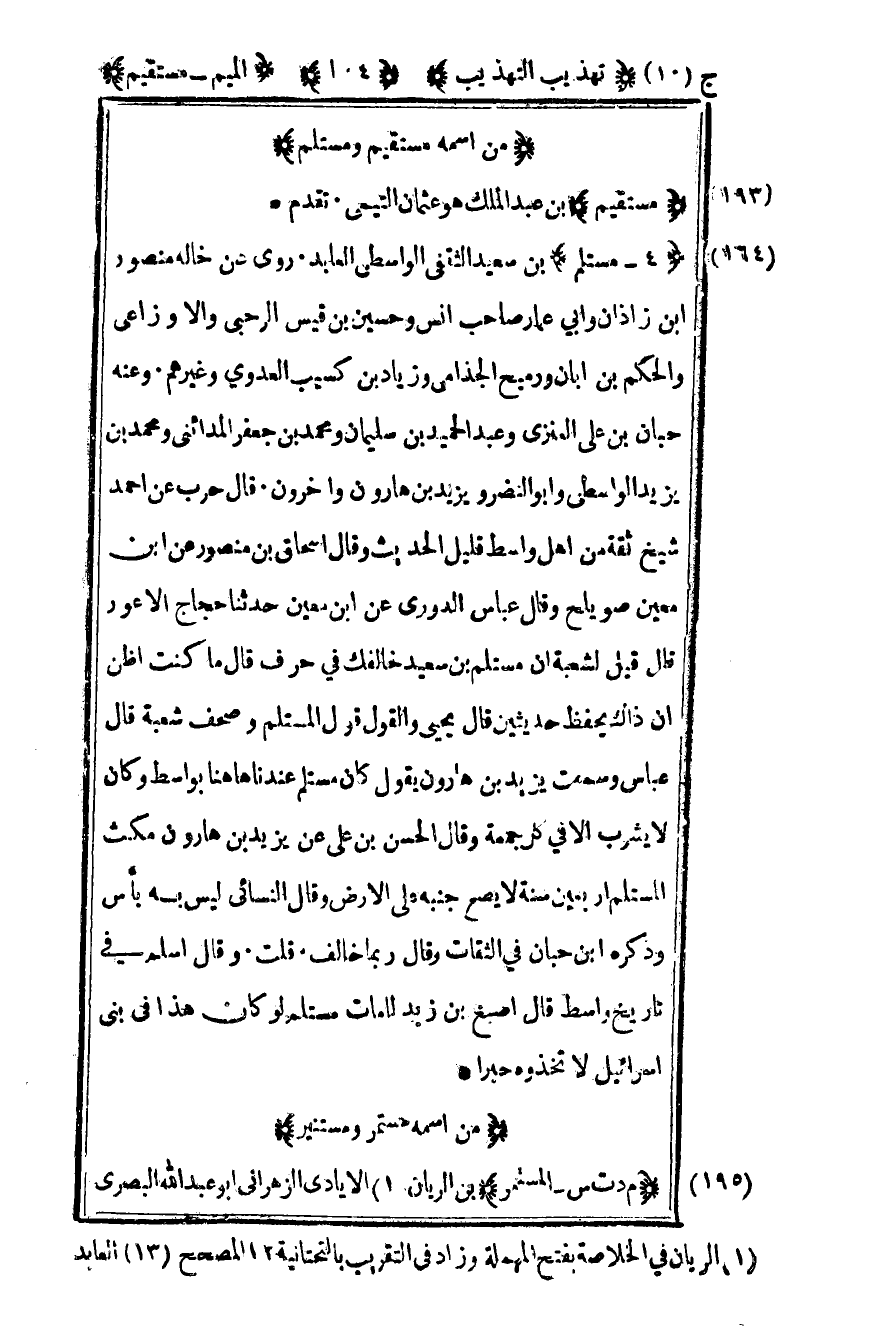 ج (١٠) ﴿ تهذيب التهذيب ﴾ ﴿ ١٠٤ ﴾ ﴿ الميم ـ مستقيم ﴾
﴿ من اسمه مستقيم ومستلم ﴾
(١٩٣) ﴿ مستقيم ﴾ بن عبدالملك هو عثمان التيمى ٠ تقدم *
(١٦٤) ﴿ ٤ ـ مستلم ﴾ بن سعيد الثقفى الواسطى العابد ٠ روى عن خاله منصور
ابن زاذان وابي عمار صاحب انس وحسين بن قيس الرحبى والاوزاعى
والحكم بن ابان ورميح الجذامى وزياد بن كسيب العدوي وغيرهم ٠ وعنه
حبان بن على العنزى وعبدالحميد بن سليمان ومحمد بن جعفر المدائنى ومحمد بن
يزيد الواسطى وابو النضر ويزيد بن هارون واخرون ٠ قال حرب عن احمد
شيخ ثقة من اهل واسط قليل الحديث وقال اسحاق بن منصور عن ابن
معين صويلح وقال عباس الدورى عن ابن معين حدثنا حجاج الاعور
قال قيل لشعبة ان مستلم بن سعيد خالفك في حرف قال ما كنت اظن
ان ذاك يحفظ حديثين قال يحيى والقول قول المستلم وصحف شعبة قال
عباس وسمعت يزيد بن هارون يقول كان مستلم عندنا هاهنا بواسط وكان
لا يشرب الا في كل جمعة وقال الحسن بن على عن يزيد بن هارون مكث
المستلم اربعين سنة لا يضع جنبه على الارض وقال النسائى ليس به بأس
وذكره ابن حبان في الثقات وقال ربما خالف ٠ قلت ٠ وقال اسلم في
تاريخ واسط قال اصبغ بن زيد لما مات مستلم لو كان هذا فى بنى
اسرائيل لاتخذوه حبرا *
﴿ من اسمه مستمر ومستنير ﴾
(١٩٥) ﴿ م د ت س ـ المستمر ﴾ بن الريان (١) الايادى الزهرانى ابو عبدالله البصرى
(١) الريان في الخلاصة بفتح المهملة وزاد فى التقريب بالتحتانية ١٢ المصحح (١٣) العابد